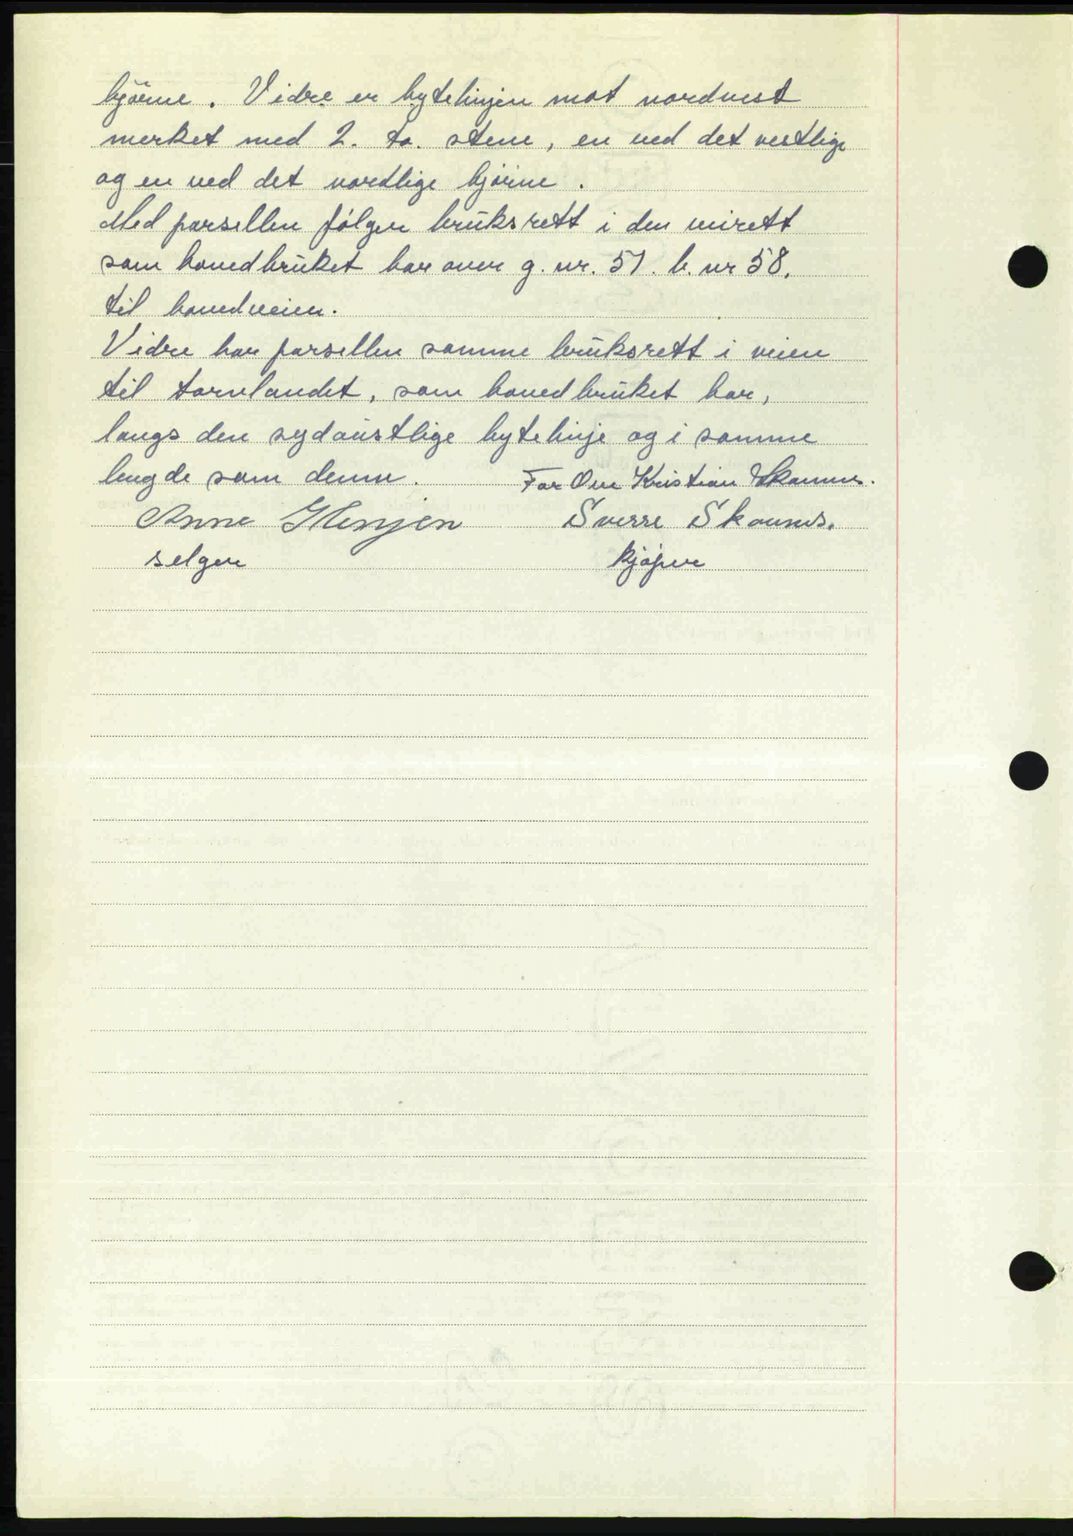 hjørne. Vidre er bytelinjen mot nordvest
merket med 2. to. stene, en ved det vestlige
og en ved det nordlige hjørne.
Med parsellen følger brúksrett i den veirett
som hovedbrúket har over g. nr. 51. b. nr 58.
til hovedveien.
Vidre har parsellen samme brúksrett i veien
til tornlandet, som hovedbrúket har,
langs den sydøústlige bytelinje og i samme
lengde som denne. For Ove Kristian Skaunes.
Anne Sverre Skaunes.
selger kjøper